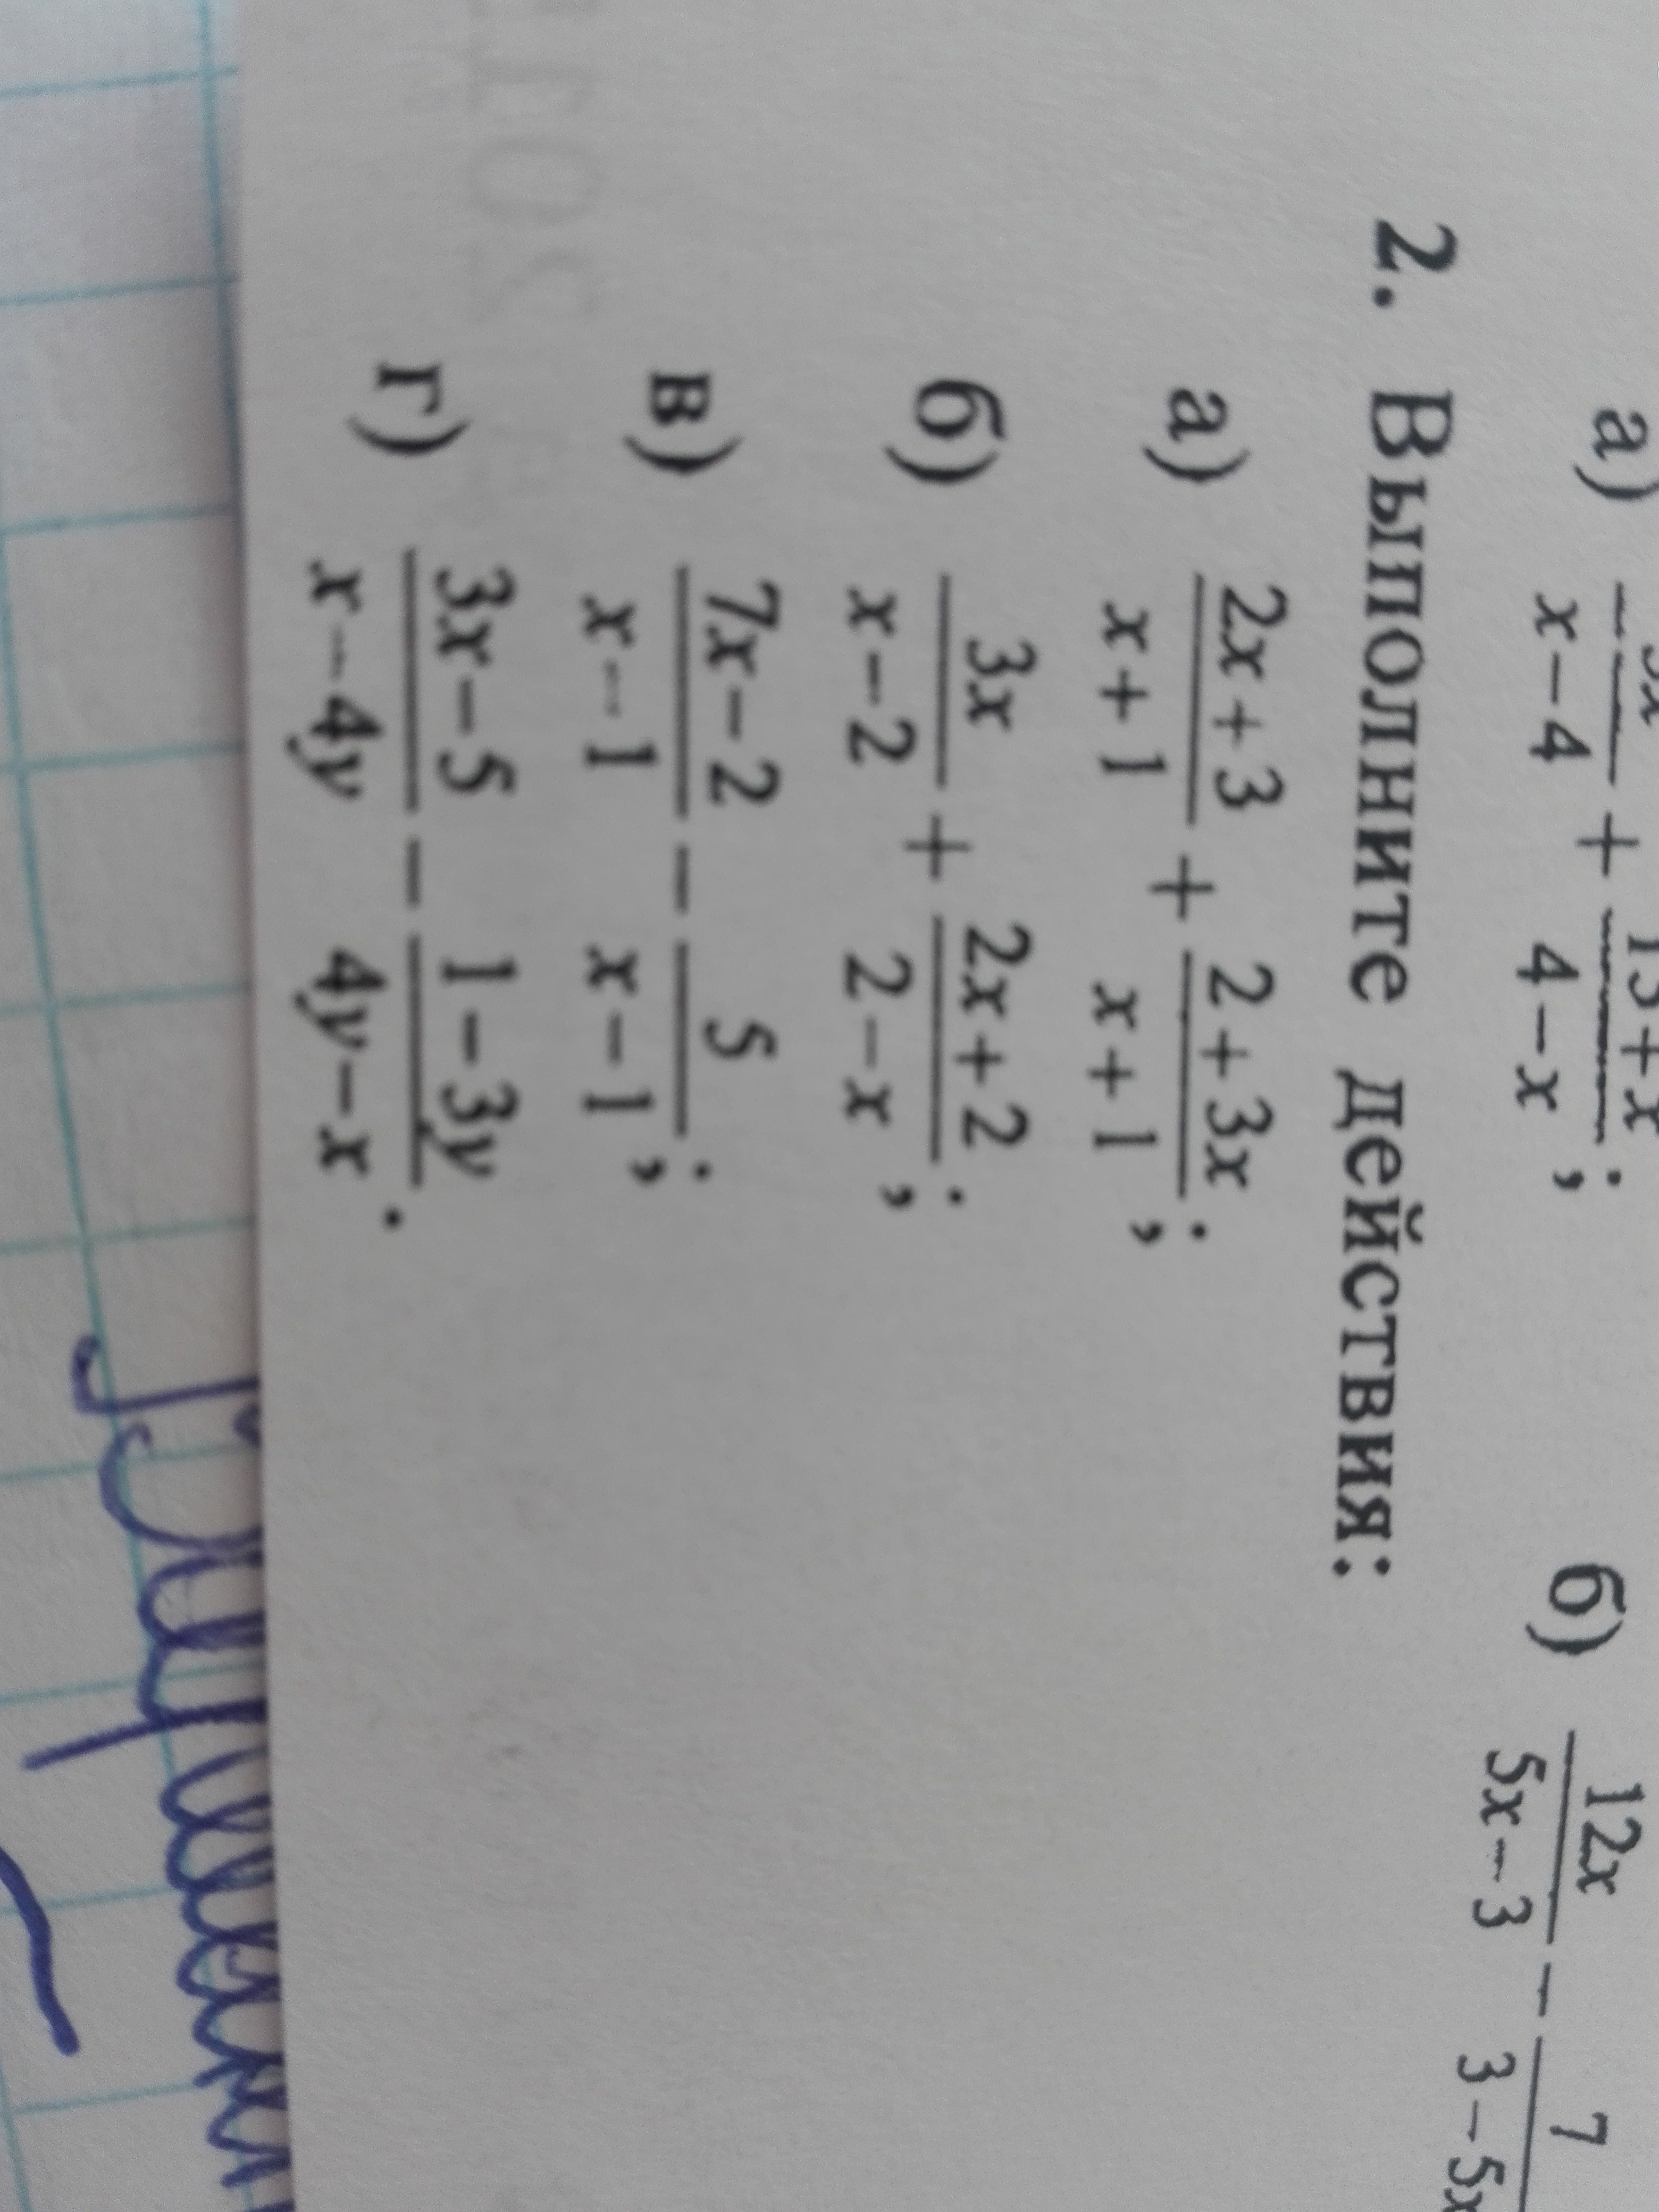 а) x/(x − 4) + (13 + x)/(4 − x); б) 12x/(5x − 3) − 7/(3 − 5x
2. Выполните действия:
а) (2x + 3)/(x + 1) + (2 + 3x)/(x + 1);
б) 3x/(x − 2) + (2x + 2)/(2 − x);
в) (7x − 2)/(x − 1) − 5/(x − 1);
г) (3x − 5)/(x − 4y) − (1 − 3y)/(4y − x).